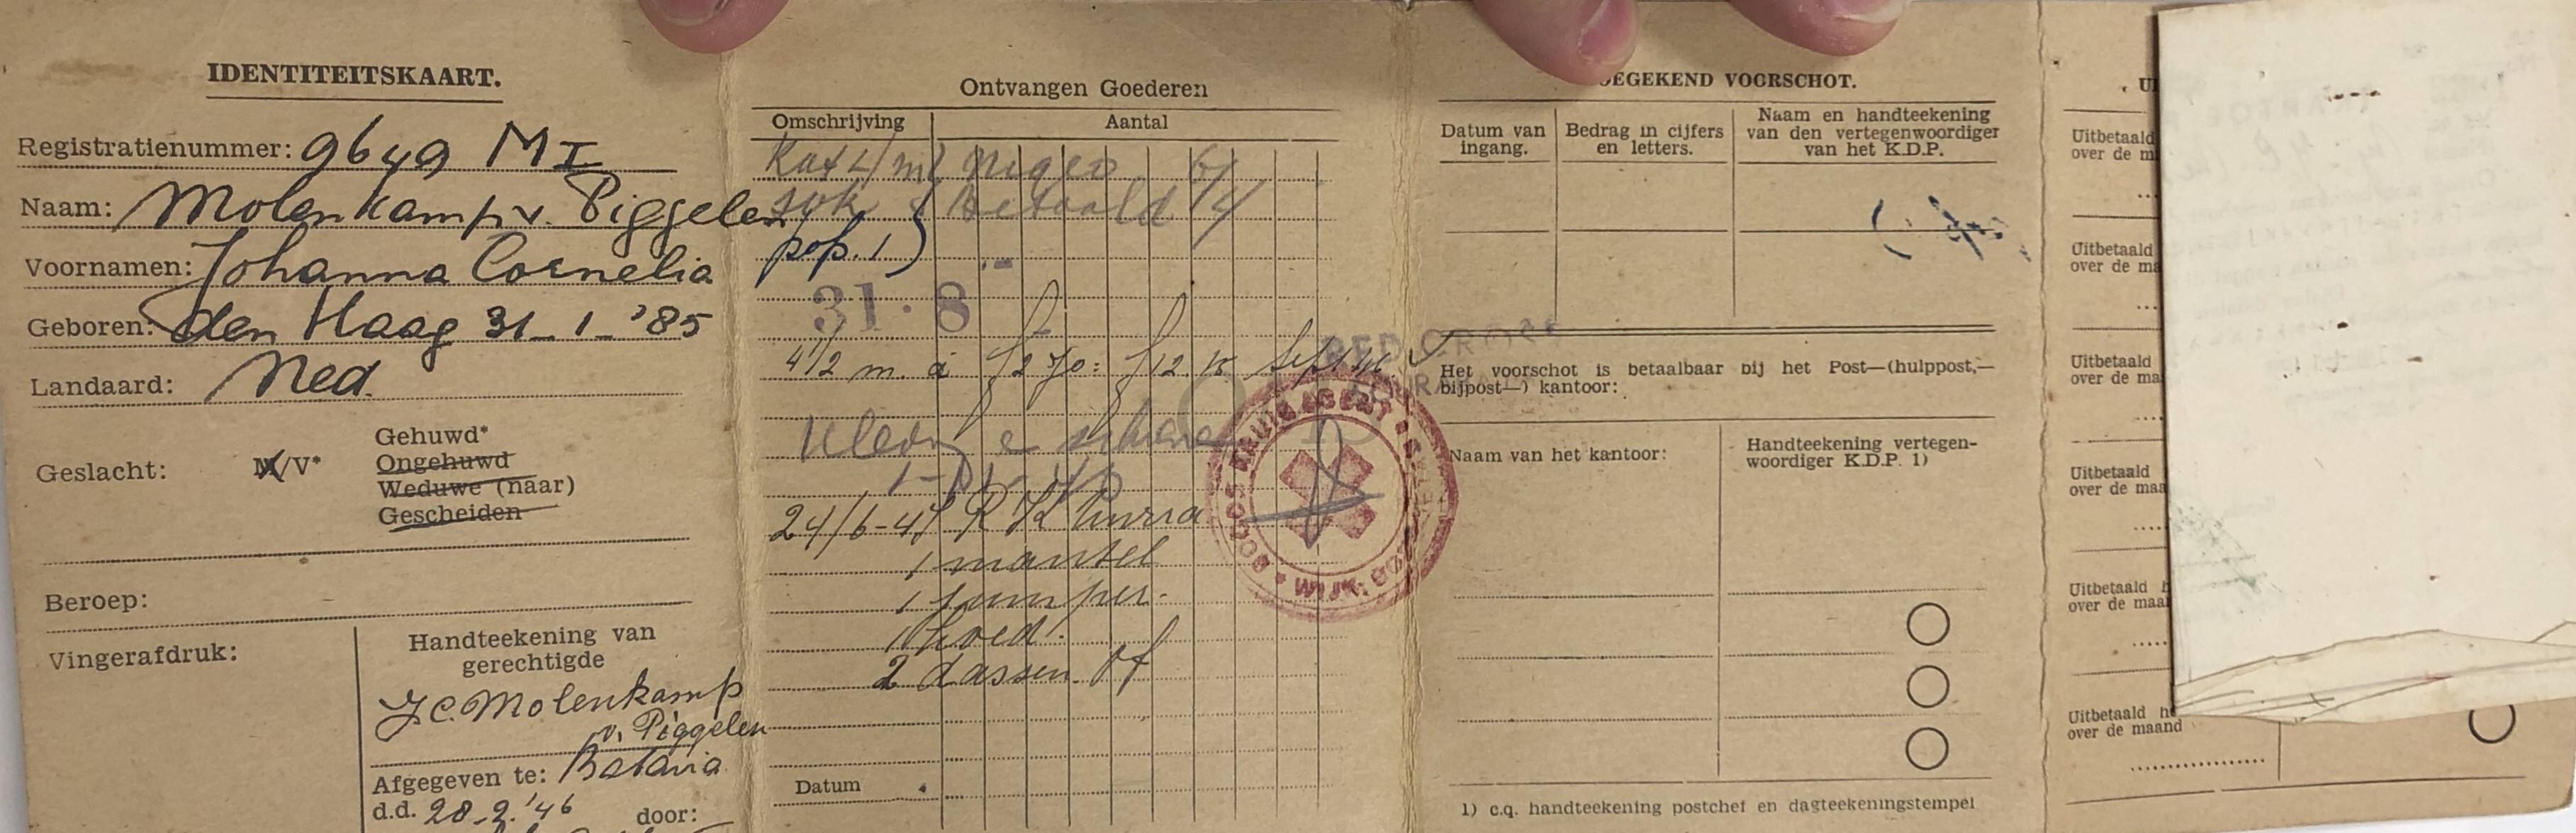 IDENTITEITSKAART.
Registratienummer: 9649 MI
Naam: Molenkamp v. Piggelen
Voornamen: Johanna Cornelia
Geboren: den Haag 31-1-'85
Landaard: Ned.
Geslacht: M/V*
Gehuwd*
Ongehuwd
Weduwe (naar)
Gescheiden
Beroep:
Vingerafdruk:
Handteekening van
gerechtigde
J.C. Molenkamp
v. Piggelen
Afgegeven te: Batavia
d.d. 28-2-'46 door:
Ontvangen Goederen
Omschrijving Aantal
Betaald
pop. 1
31·8
4 1/2 m. à
1
24/6-4
1 mantel
1 jumper.
1 hoed.
2 dassen
Datum
RED CROSS
WIJK:
OEGEKEND VOORSCHOT.
Datum van
ingang.
Bedrag in cijfers
en letters.
Naam en handteekening
van den vertegenwoordiger
van het K.D.P.
Het voorschot is betaalbaar bij het Post—(hulppost,—
bijpost—) kantoor:
Naam van het kantoor:
Handteekening vertegen-
woordiger K.D.P. 1)
1) c.q. handteekening postchef en dagteekeningstempel
Uitbetaald
over de m
Uitbetaald
over de ma
Uitbetaald
over de ma
Uitbetaald
over de maa
Uitbetaald h
over de maa
Uitbetaald he
over de maand